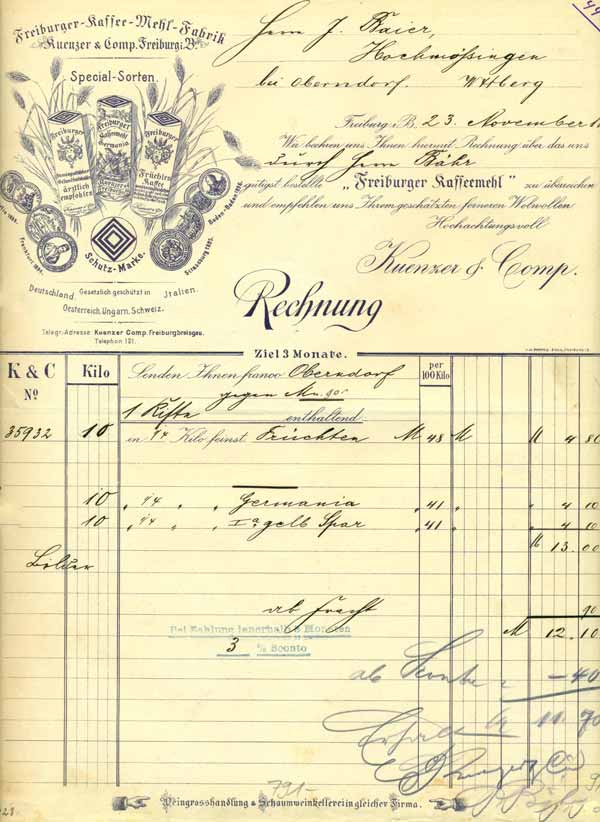 Freiburger-Kaffee-Mehl-Fabrik
Kuenzer & Comp. Freiburg i/B.
Special-Sorten.
Freiburger
Freiburger Kaffeemehl Germania
Freiburger
Früchten Kaffee
ärztlich empfohlen
Frankfurt 1894.
Baden-Baden 1896.
Strassburg 1895.
Schutz-Marke.
Deutschland. Gesetzlich geschützt in Italien.
Oesterreich. Ungarn. Schweiz.
Telegr.-Adresse: Kuenzer Comp. Freiburgbreisgau.
Telephon 121.
Herrn J. Baier,
Hochmössingen
bei Oberndorf. Wttberg
Freiburg i. B. 23. November
Wir beehren uns, Ihnen hiermit Rechnung über das uns
durch Herrn Bähr
gütigst bestellte „Freiburger Kaffeemehl" zu überreichen
und empfehlen uns Ihrem geschätzten ferneren Wolwollen
Hochachtungsvoll
Kuenzer & Comp.
Rechnung
Ziel 3 Monate.
K & C No
Kilo
Senden Ihnen franco Oberndorf
per 100 Kilo
gegen
1 Kiste enthaltend:
35932 10 in 1/4 Kilo feinst. Früchten M 48 M M 4 80
10 " 1/4 " " Germania " 41 " " 4 10
10 " 1/4 " " Ia gelb Spar " 41 " " 4 10
M 13.00
Bilder
ab Fracht 90
M 12.10
Bei Zahlung innerhalb 3 Monaten
3 % Sconto
ab Sconto - 40
Erhalt 11 70
791-
Weingrosshandlung & Schaumweinkellerei in gleicher Firma.